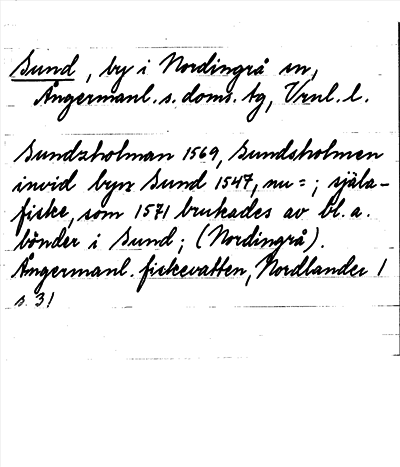 Sund, by i Nordingrå sn,
Ångermanl. s. doms. tg, Vrnl. l.
Sundzholman 1569, Sundsholmen
invid byn Sund 1547, nu = ; själa-
fiske, som 1571 brukades av bl. a.
bönder i Sund; (Nordingrå).
Ångermanl. fiskevatten, Nordlander 1
s. 31